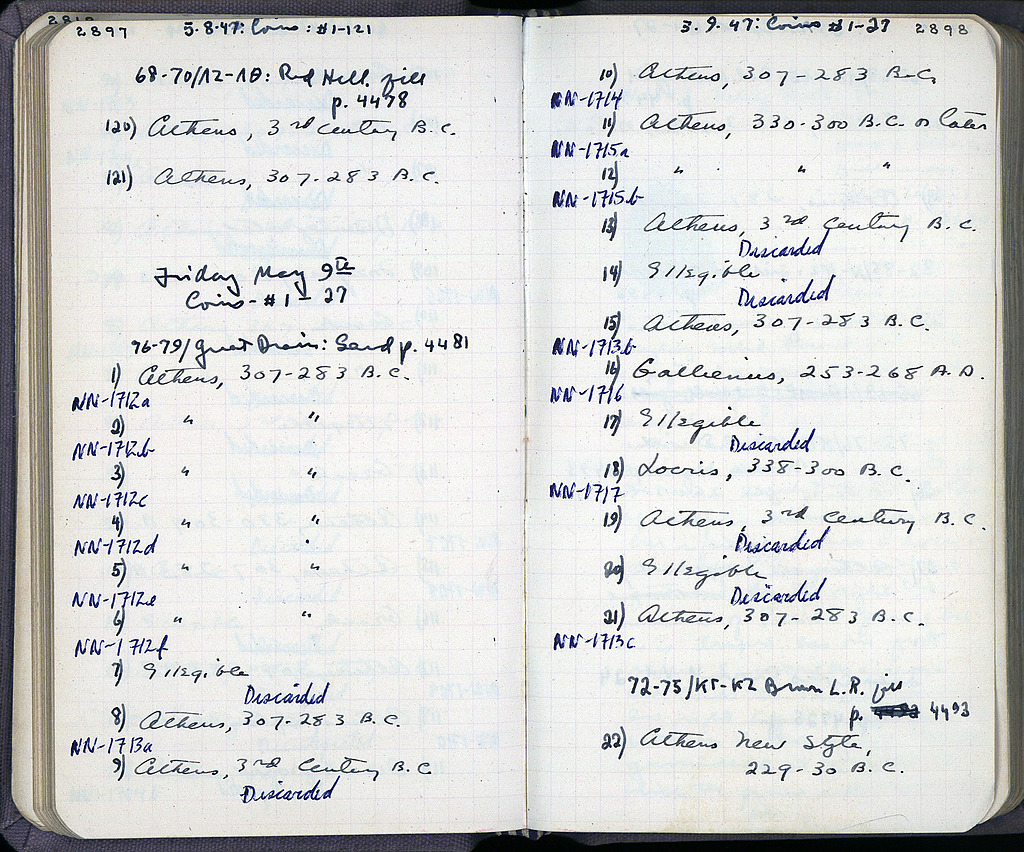 2897 5·8·47: Coins: #1-121
68-70/ΙΖ-ΙΘ: Red Hill fill
p. 4478
120) Athens, 3rd Century B.C.
121) Athens, 307-283 B.C.
Friday May 9th
Coins - #1-27
76-79/Great Drain: Sand p. 4481
1) Athens, 307-283 B.C.
NN-1712a
2) " "
NN-1712b
3) " "
NN-1712c
4) " "
NN-1712d
5) " "
NN-1712e
6) " "
NN-1712f
7) Illegible
Discarded
8) Athens, 307-283 B.C.
NN-1713a
9) Athens, 3rd Century B.C.
Discarded
5·9·47: Coins #1-27 2898
10) Athens, 307-283 B.C.
NN-1714
11) Athens, 330-300 B.C. or later
NN-1715a
12) " " "
NN-1715b
13) Athens, 3rd Century B.C.
Discarded
14) Illegible
Discarded
15) Athens, 307-283 B.C.
NN-1713b
16) Gallienus, 253-268 A.D.
NN-1716
17) Illegible
Discarded
18) Locris, 338-300 B.C.
NN-1717
19) Athens, 3rd Century B.C.
Discarded
20) Illegible
Discarded
21) Athens, 307-283 B.C.
NN-1713c
72-75/ΚΓ-ΚΖ Brown L.R. fill
p. 4493
22) Athens New Style,
229-30 B.C.